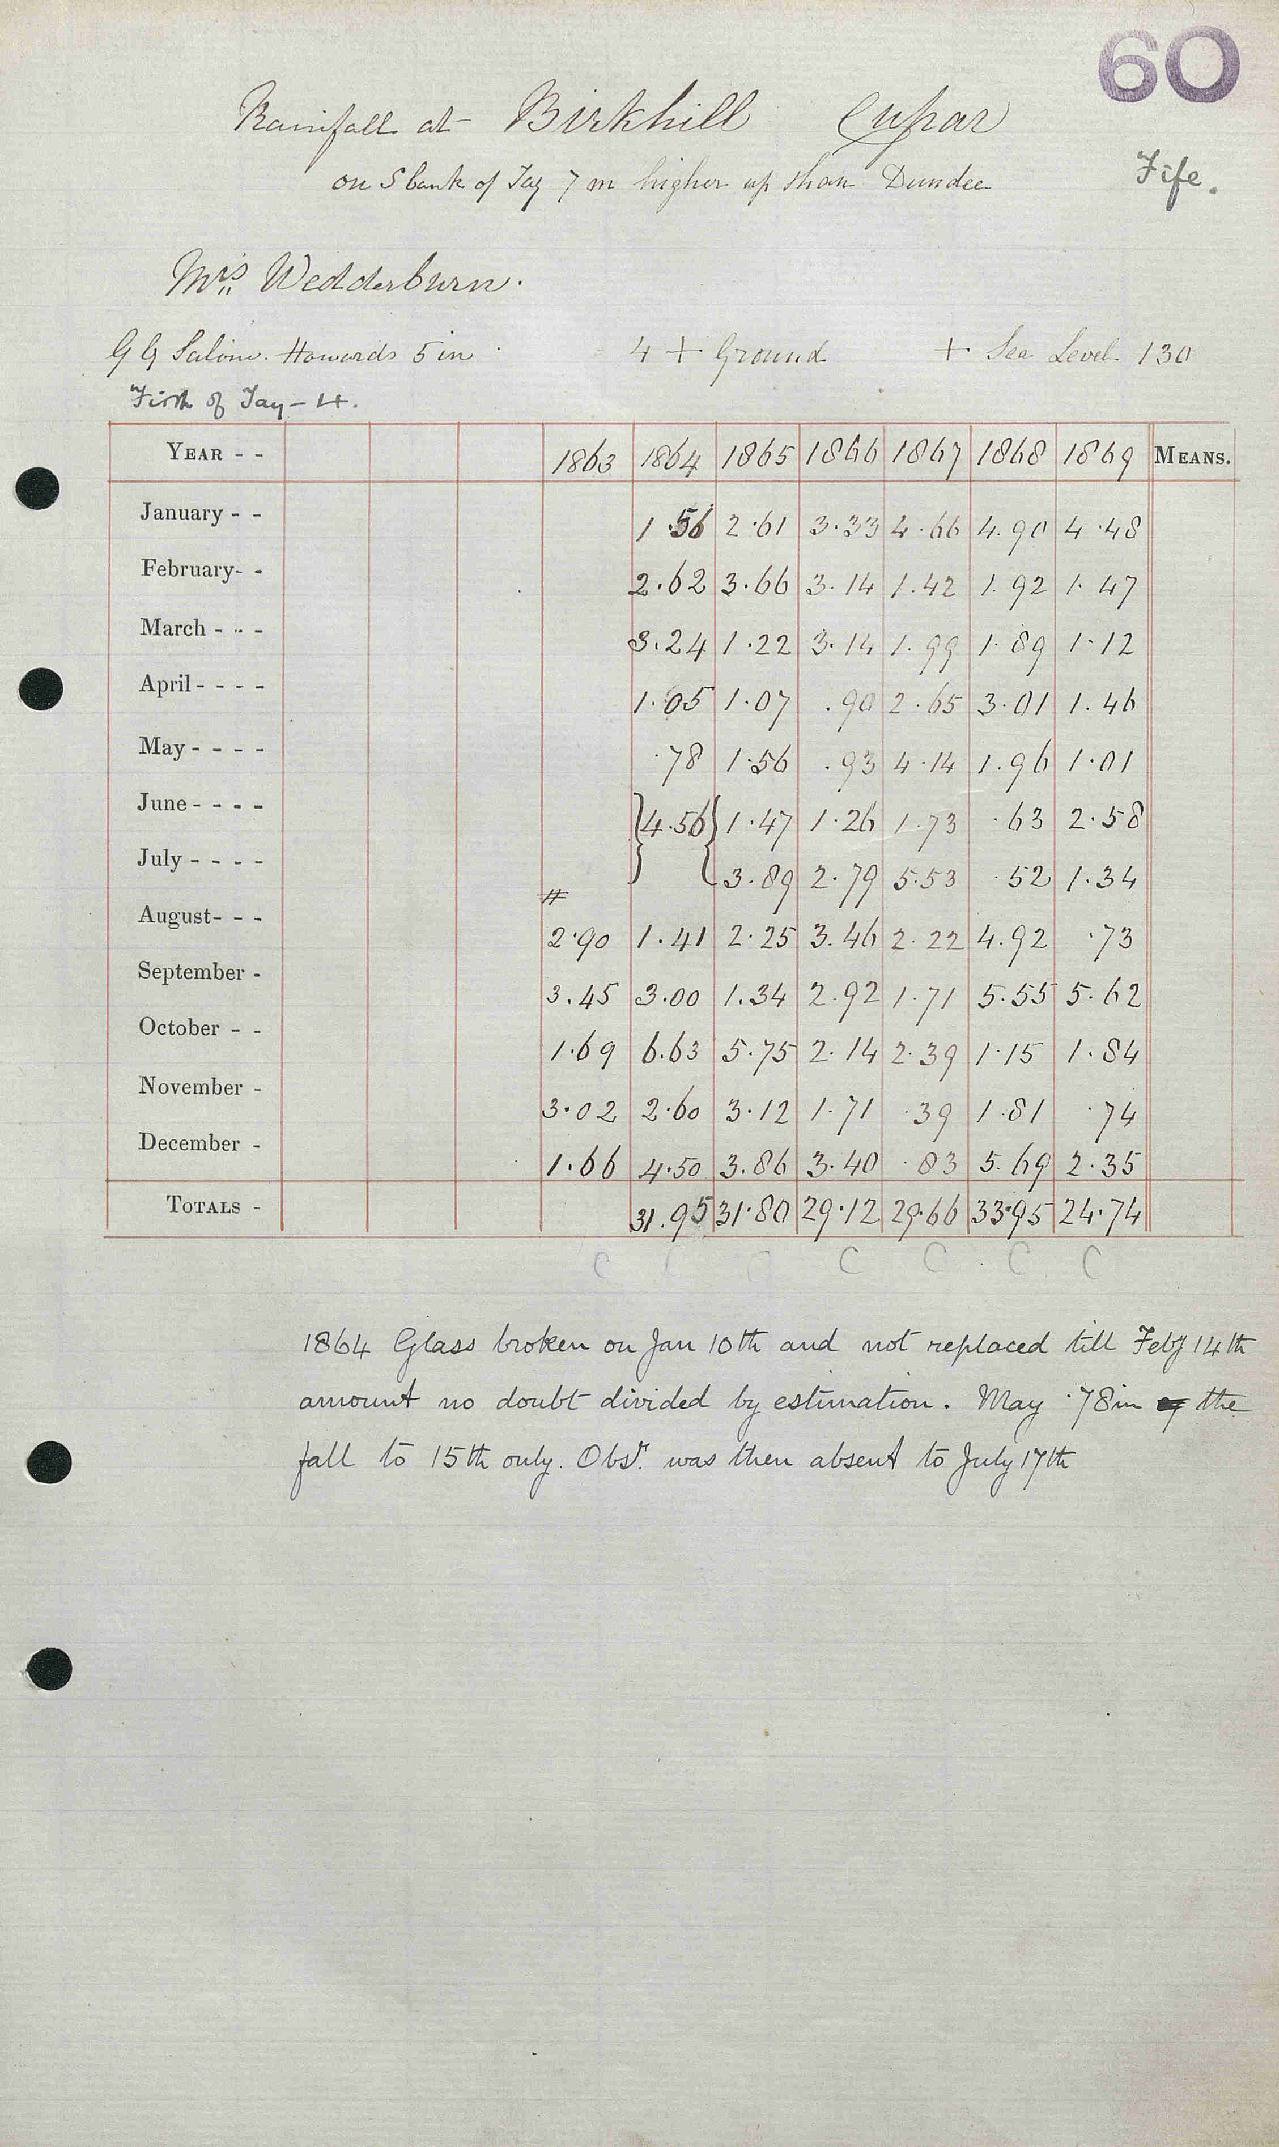 60
Rainfall at Birkhill Cupar
on S bank of Tay 7 m higher up than Dundee
Fife.
Mrs Wedderburn.
G G Howards 5 in 4 + Ground + Sea Level 130
Firth of Tay - 4.
YEAR - - 1863 1864 1865 1866 1867 1868 1869 MEANS.
January - - 1.56 2.61 3.33 4.66 4.90 4.48
February- - 2.62 3.66 3.14 1.42 1.92 1.47
March - - - 3.24 1.22 3.14 1.99 1.89 1.12
April - - - - 1.05 1.07 .90 2.65 3.01 1.46
May - - - - .78 1.56 .93 4.14 1.96 1.01
June - - - - } 4.56 { 1.47 1.26 1.73 .63 2.58
July - - - - 3.89 2.79 5.53 .52 1.34
August- - - 2.90 1.41 2.25 3.46 2.22 4.92 .73
September - 3.45 3.00 1.34 2.92 1.71 5.55 5.62
October - - 1.69 6.63 5.75 2.14 2.39 1.15 1.84
November - 3.02 2.60 3.12 1.71 .39 1.81 .74
December - 1.66 4.50 3.86 3.40 .83 5.69 2.35
TOTALS - 31.95 31.80 29.12 29.66 33.95 24.74
C C C C C C C
1864 Glass broken on Jan 10th and not replaced till Feby 14th
amount no doubt divided by estimation. May .78 in the
fall to 15th only. Obsr. was then absent to July 17th